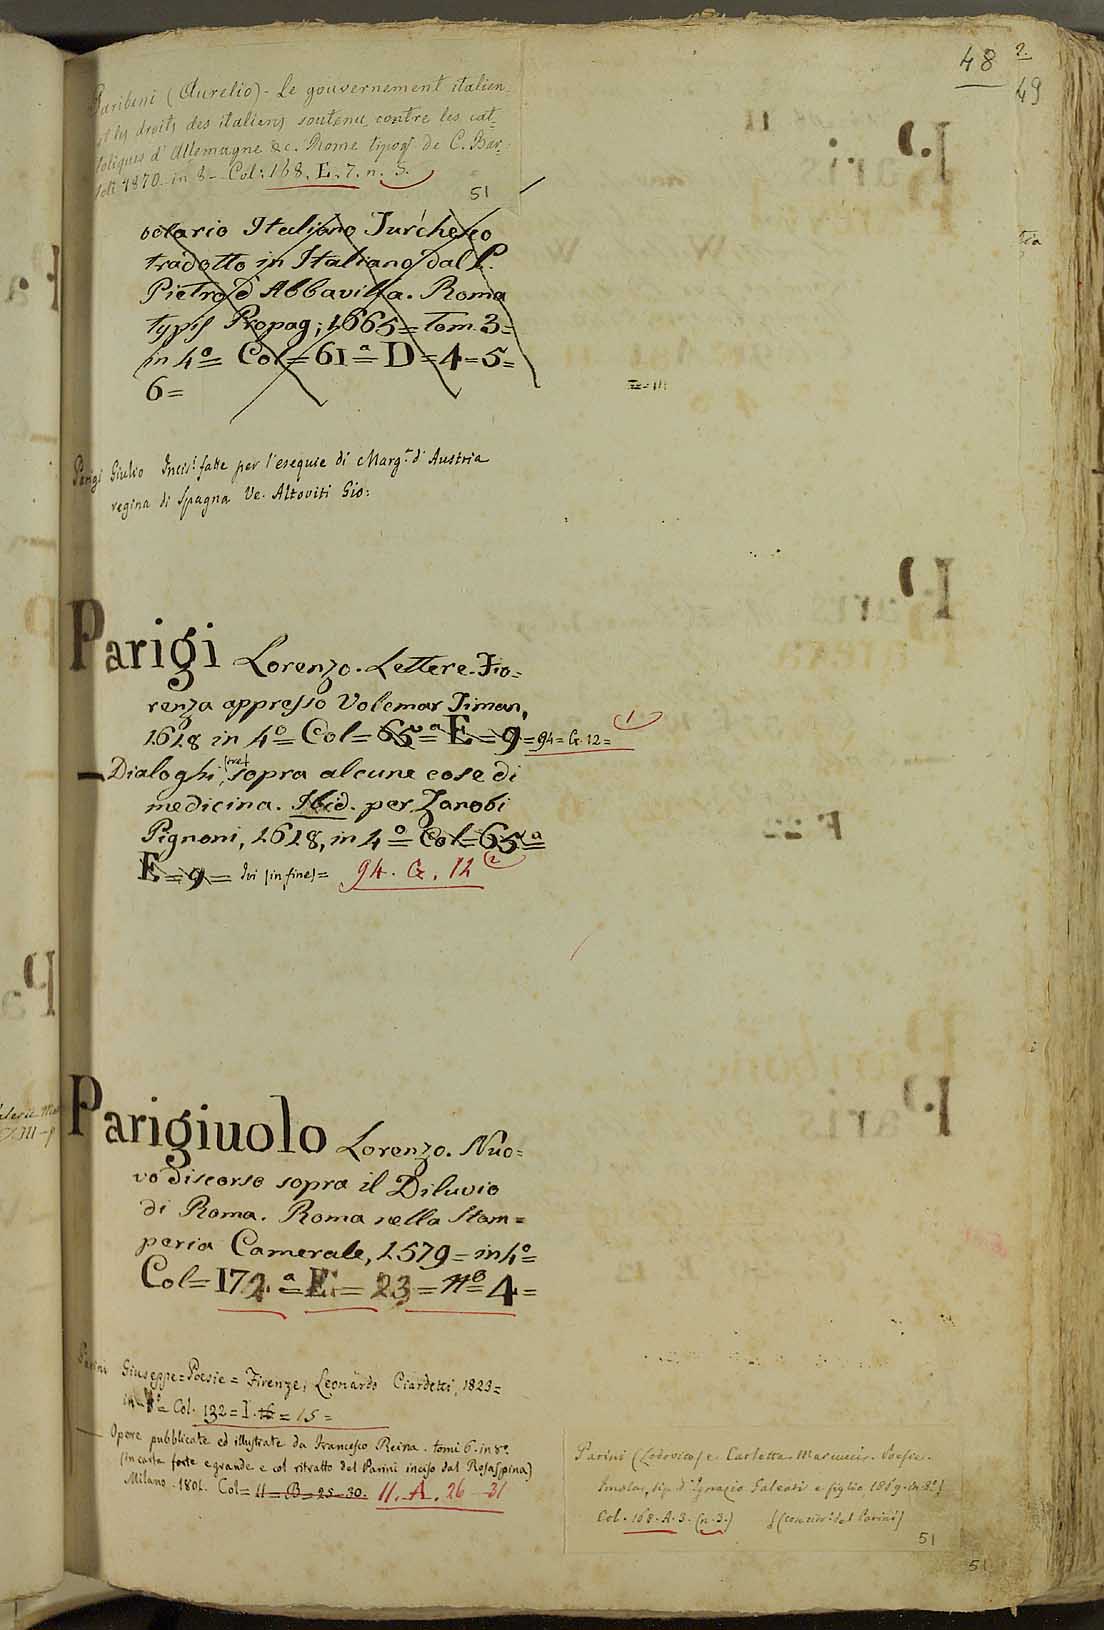 48 2.
49
Paribeni (Aurelio) - Le gouvernement italien
et les droits des italiens soutenu contre les cat-
toliques d'Allemagne &c. Rome tipog. de C. Bar-
toli 1870 - in 8 - Col: 168. E. 7. n. 3.
51
bolario Italiano Turchesco
tradotto in Italiano dal P.
Pietro d'Abbavilla. Roma
typis Propag; 1665 = Tom. 3 =
in 4º = Col = 61ª = D = 4 = 5 =
6 =
Parigi Giulio Incis.i fatte per l'esequie di Marg.ta d'Austria
regina di Spagna Ve. Altoviti Gio:
Parigi Lorenzo. Lettere. Fio=
renza appresso Volcmar Timan,
1618 in 4º = Col = 65ª = E = 9 = 94 = G. 12 = 1
— Dialoghi tre sopra alcune cose di
medicina. Ibid. per Zanobi
Pignoni, 1618, in 4º = Col = 65ª =
E = 9 = Ivi (in fine) = 94. G. 12 2
Parigiuolo Lorenzo. Nuo=
vo discorso sopra il Diluvio
di Roma. Roma nella Stam=
peria Camerale, 1579 = in 4º =
Col = 172ª = E = 23 = nº 4 =
Parini Giuseppe = Poesie = Firenze, Leonardo Ciardetti, 1823 =
in 8º = Col. 132 = I. 16 = 15 =
— Opere pubblicate ed illustrate da Francesco Reina. tomi 6. in 8º.
(in carta forte e grande e col ritratto del Parini inciso dal Rosaspina)
Milano. 1801. Col = 11 = B = 25 = 30. 11. A. 26 - 31
Parini (Lodovico) e Carletta Masucci. Poesie.
Imola, tip. d'Ignazio Galeati e figlio 1869. in 8º)
Col. 168. A. 3. (n. 3.)
51
51